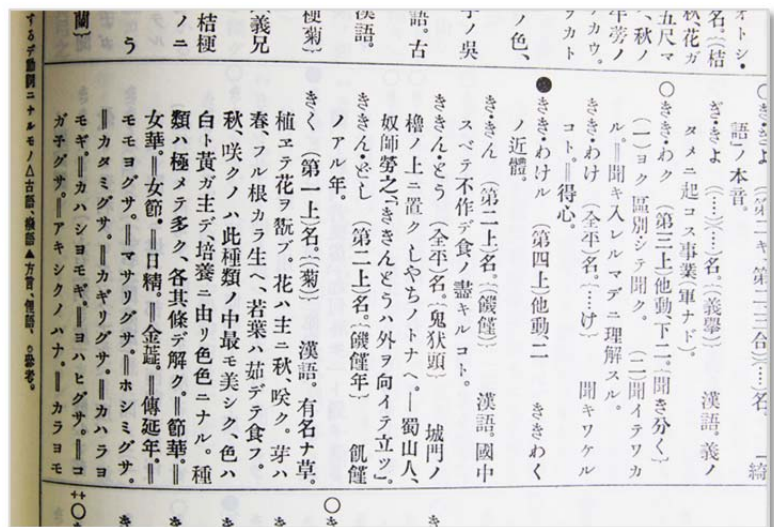 オトシ・
名。〔桔
秋、花ガ
五尺マ
、秋ノ
牛蒡ノ
アカウ。
ヲカト
ノ色、
子ノ吳
語。古
漢語。
梗菊〕
義兄
桔梗
ノニ
う
蘭〕
語」ノ本音。
ぎ・きよ 〔……〕(……)名。〔義擧〕 漢語。義ノ
タメニ起コス事業(軍ナド)。
〇きき・わく (第三上)他動、下二。〔聞き分く〕
(一)ヨク區別シテ聞ク。 (二)聞イテワカ
ル。‖聞キ入レルマデニ理解スル。
きき・わけ (全平)名。〔……け〕 聞キワケル
コト。‖得心。
●きき・わけル (第四上)他動、二 ききわく
ノ近體。
き・きん (第二上)名。〔饑饉〕 漢語。國中
スベテ不作デ食ノ盡キルコト。
ききん・とう (全平)名。〔鬼狄頭〕 城門ノ
櫓ノ上ニ置ク しやちノトナヘ。—蜀山人、
奴師勞之、「ききんとうハ外ヲ向イテ立ツ」。
ききん・どし (第二上)名。〔饑饉年〕 飢饉
ノアル年。
きく (第一上)名。〔菊〕 漢語。有名ナ草。
植ヱテ花ヲ翫ブ。花ハ主ニ秋、咲ク。芽ハ
春、フル根カラ生ヘ、若葉ハ茹デテ食フ。
秋、咲クノハ此種類ノ中最モ美シク、色ハ
白ト黃ガ主デ、培養ニ由リ色色ニナル。種
類ハ極メテ多ク、各其條デ解ク。‖節華。‖
女華。‖女節。‖日精。‖金蕋。‖傳延年。‖
モモヨグサ。‖マサリグサ。‖ホシミグサ。
‖カタミグサ。‖カギリグサ。‖カハラヨ
モギ。‖カハシヨモギ。‖ヨハヒグサ。‖コ
ガ子グサ。‖アキシクノハナ。‖カラヨモ
スルデ動詞ニナルモノ△古語、癈語▲方言、俚語、